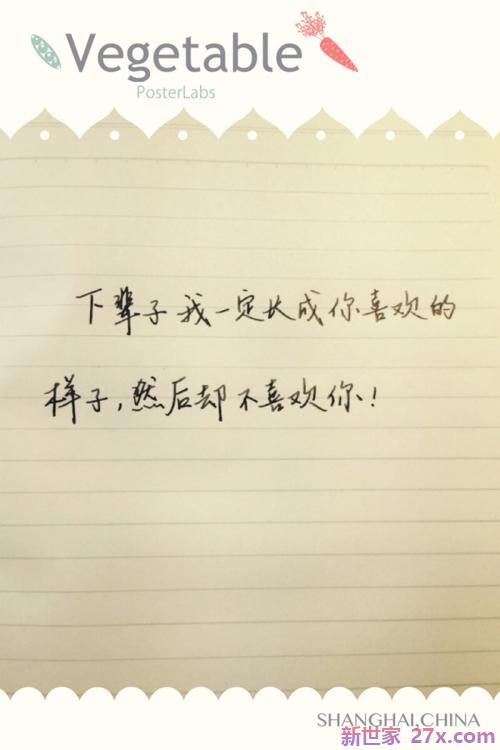 Vegetable
PosterLabs
下辈子我一定长成你喜欢的
样子,然后却不喜欢你!
SHANGHAI,CHINA
新世家 27x.com